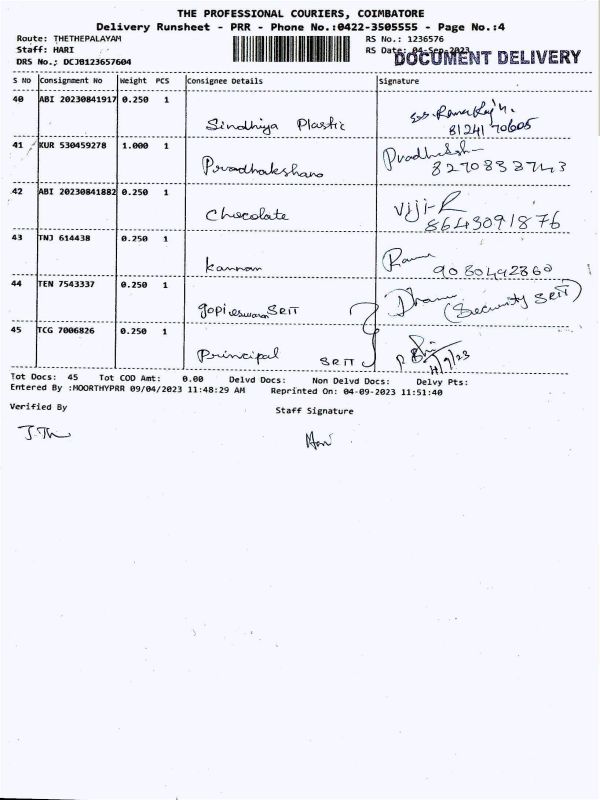 THE PROFESSIONAL COURIERS, COIMBATORE
Delivery Runsheet - PRR - Phone No.:0422-3505555 - Page No.:4
Route: THETHEPALAYAM RS No.: 1236576
Staff: HARI RS Date: 04-Sep-2023
DOCUMENT DELIVERY
DRS No.; DCJ0123657604
S NO Consignment No Weight PCS Consignee Details Signature
40 ABI 20230841917 0.250 1
Sindhiya Plastic
81241 70605
41 KUR 530459278 1.000 1
Pradhakshana
8270838743
42 ABI 20230841882 0.250 1
Chocolate Viji-R
8643091876
43 TNJ 614438 0.250 1
Kannan Rama
9080492860
44 TEN 7543337 0.250 1
Gopieswaran SRIT (Security SRIT)
45 TCG 7006826 0.250 1
Principal SRIT
4/9/23
Tot Docs: 45 Tot COD Amt: 0.00 Delvd Docs: Non Delvd Docs: Delvy Pts:
Entered By :MOORTHYPRR 09/04/2023 11:48:29 AM Reprinted On: 04-09-2023 11:51:40
Verified By Staff Signature
Hari